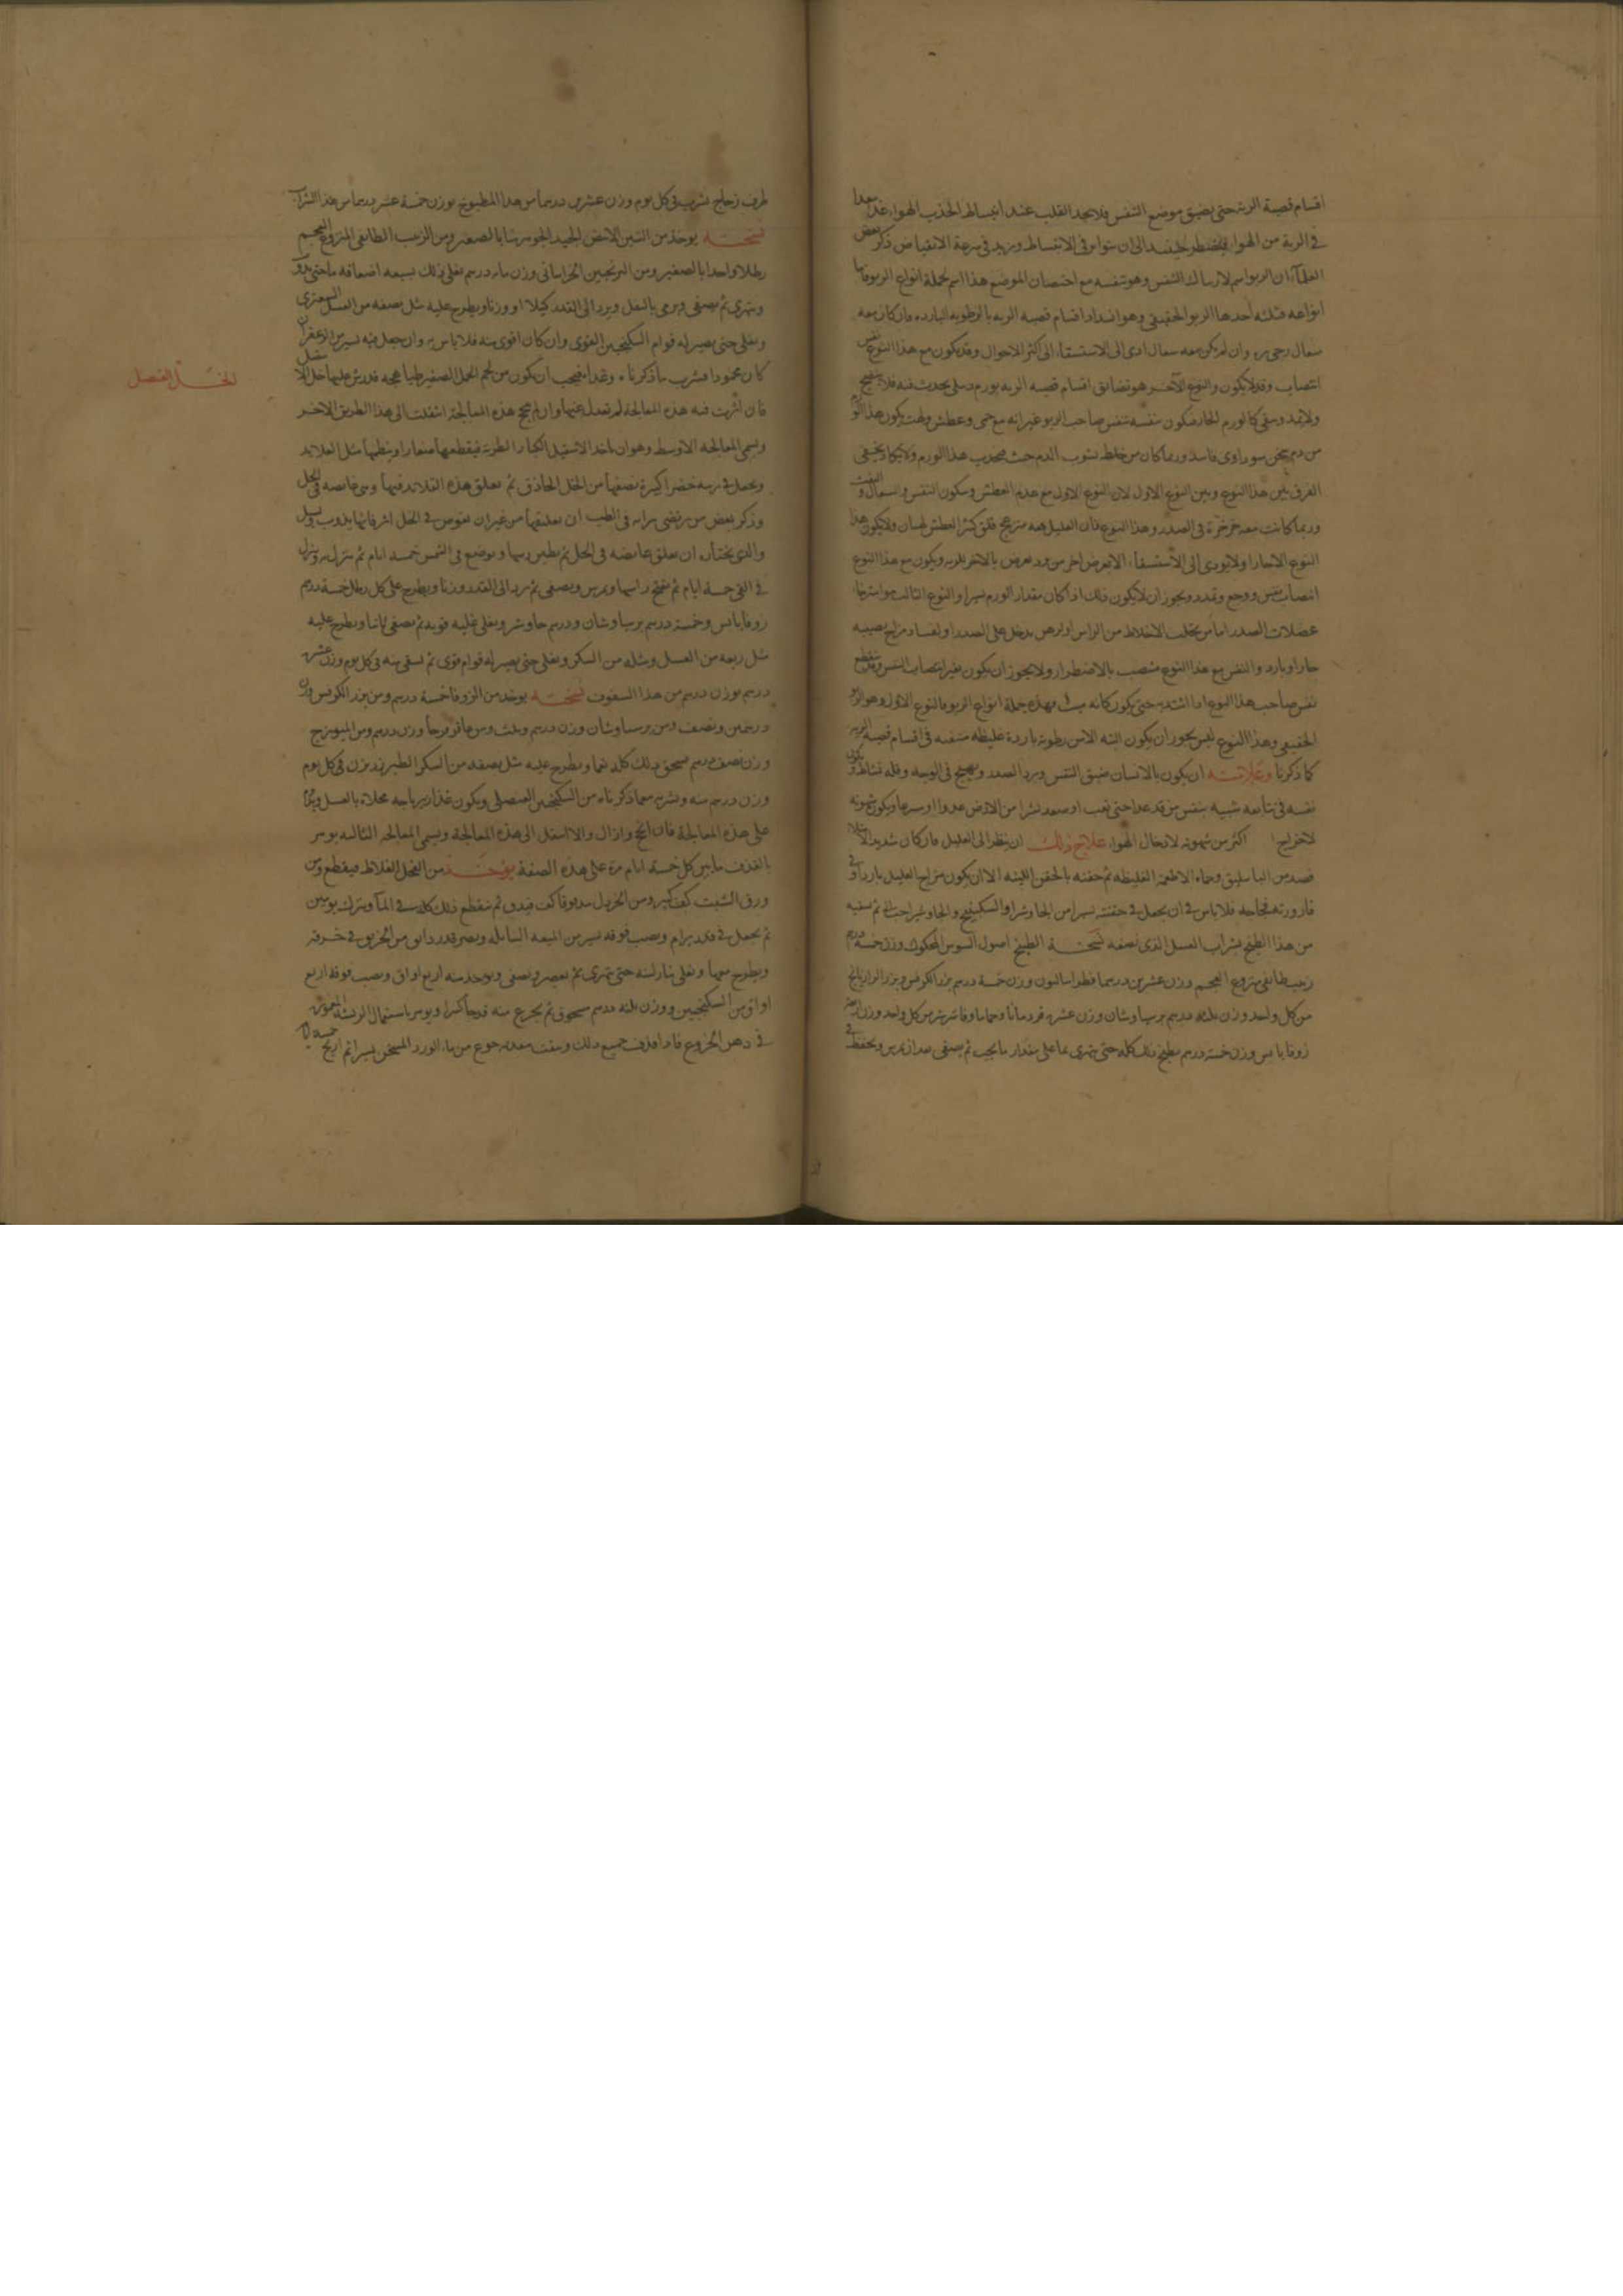 اقسام قصبة الرية حتى يضيق موضع التنفس فلا يجد القلب عند انبساطه لجذب الهواء
في الرية من الهوا فيضطر حينئذ الى ان يتواتر في الانبساط ويزيد في سرعة الانقباض ذكر بعض
العلماء ان الربو اسم لازسال التنفس وهو تنفسه مع اختصان الموضع هذا اسم لجملة انواع الربو فاما
انواعه فثلثه احدها الربو الحقيقي وهو انسداد اقسام قصبه الريه بالرطوبه البارده فان كان معه
سعال رجي برء وان لم يكن معه سعال ادى الى الاستسقاء الى اكثر الاحوال وقد يكون مع هذا النوع نفس
انتصاب وقد لا يكون والنوع الآخر هو تضايق اقسام قصبه الريه بورم دملي يحدث فيه فلا ينضج
ولا يمد ويبقى كالورم الحار فيكون تنفسه تنفس صاحب الربو غير انه مع حمى وعطش ولهث يكون هذا الورم
من دم محض سوداوى فاسد وربما كان من خلط يشوب الدم حيث يحدث هذا الورم ولا يكاد يخفى
الفرق بين هذا النوع وبين النوع الاول لان النوع الاول مع عدم العطش وسكون النفس والسعال والنفث
وربما كانت معه خرخرة في الصدر وهذا النوع فان العليل معه منزعج قلق كثير العطش لهثان ولا يكون هذا
النوع الا حارا ولا يودى الى الاستسقاء الا بعرض اخر من برد يعرض بالاخر للريه ويكون مع هذا النوع
انتصاب نفس ووجع وتمدد ويجوز ان لا يكون ذلك اذا كان مقدار الورم يسيرا والنوع الثالث هو استرخاء
عضلات الصدر اما من تحلب الاخلاط من الراس او لمرض يدخل على الصدر او لفساد مزاج يصيبه
حار او بارد والنفس مع هذا النوع منتصب بالاضطرار ولا يجوز ان يكون بغير انتصاب النفس وينقطع
نفس صاحب هذا النوع اذا اشتد به حتى يكون كانه ميت فهذه جملة انواع الربو فالنوع الاول وهو الربو
الحقيقي وهذا النوع ليس يجوز ان يكون البته الا من رطوبة باردة غليظه منصبه في اقسام قصبة الريه
كما ذكرنا وعلامته ان يكون بالانسان ضيق التنفس وبرد الصدر وتهبج في الوجه وقله نشاط ويكون
نفسه في تتابعه شبيه بنفس من قد عدا حتى تعب او صعد نشزا من الارض عدوا او سرعا ويكون شهوته
لاخراج اكثر من شهوته لادخال الهوا علاج ذلك ان ينظر الى العليل فان كان شديد الامتلاء
فصد من الباسليق وحماه الاطعمة الغليظه ثم حقنه بالحقن اللينه الا ان يكون مزاج العليل باردا وفي
قارورته فجاجه فلا باس في ان يجعل في حقنته يسيرا من الجاوشير او السكبينج ثم تسقيه
من هذا الطبيخ بشراب العسل الذى نصفه نسخة الطبيخ اصول السوس المحكوك وزن خمسة درهم
زبيب طائفي منزوع العجم وزن عشرين درهما فطراساليون وزن خمسة درهم بزر الكرفس وبزر الرازيانج
من كل واحد وزن ثلثه درهم برسياوشان وزن عشره قردمانا وحماما من كل واحد وزن
زوفا يابس وزن خمسة درهم يطبخ ذلك كله حتى يتهرى بما على مقدار ما يجب ثم يصفى بعد ان يمرس ويحفظ في
ظرف زجاج يشرب في كل يوم وزن عشرين درهما من هذا المطبوخ بوزن خمسة عشر درهما من هذا الشراب
نسخته يوخذ من التين الابيض الجيد الجوهر منا بالصغير ومن الزبيب الطائفي المنزوع العجم
رطلا واحدا بالصغير ومن الترنجبين الخراساني وزن مايه درهم يغلى ذلك بسبعه اضعافه ما حتى يذوب
ويتهرى ثم يصفى ويرمى بالثفل ويرد الى القدر كيلا او وزنا ويطرح عليه مثل نصفه من العسل السعترى
ويغلى حتى يصير له قوام السكنجبين القوى وان كان اقوى منه فلا باس به وان جعل فيه يسير من الزعفران
كان محمودا فيشرب ما ذكرناه وغداه فيجب ان يكون من لحم الحمل الصغير طباهجه قد رش عليها خل الاشقيل
فان اثرت فيه هذه المعالجة لم تعدل عنها وان لم تنجح هذه المعالجة انتقلت الى هذا الطريق الاخر
ويسمى المعالجه الاوسط وهو ان ياخذ الاشقيل الكبار الطرية فيقطعها صغارا وينظمها مثل القلايد
ويجعل في برنيه خضرا كبيرة نصفها من الخل الحاذق ثم تعلق هذه القلايد فيها وهي غايصه في الخل
وذكر بعض من يرتضى برايه في الطب ان تعليقها من غير ان تغوص في الخل اثر فانها يذوب ويسيل
والذى يختار ان تعلق غايصه في الخل ثم يطين راسها ويوضع في الشمس خمسة ايام ثم تنزل به وتنزل
في الفي خمسة ايام ثم يفتح راسها ويمرس ويصفى ثم يرد الى القدر وزنا ويطرح على كل رطل خمسة درهم
زوفا يابس وخمسة درهم برسياوشان ودرهم جاوشير ويغلى غليه قويه ثم يصفى ثانيا ويطرح عليه
مثل ربعه من العسل ومثله من السكر ويغلى حتى يصير له قوام قوى ثم تسقى منه في كل يوم وزن عشره
درهم بوزن درهم من هذا السفوف نسخته يوخذ من الزوفا خمسة درهم ومن بزر الكرفس وزن
درهمين ونصف ومن برسياوشان وزن درهم وثلث ومن عاقرقرحا وزن درهم ومن الميويزج
وزن نصف درهم يسحق ذلك كله نعما ويطرح عليه مثل نصفه من السكر الطبرزد يزن في كل يوم
وزن درهم منه ويشربه مما ذكرناه من السكنجبين العنصلي ويكون غذاوه زيرباجه محلاة بالعسل ويداوم
على هذه المعالجة فان انجح وازال والا انتقل الى هذه المعالجة ويسمى المعالجه الثالثه يومر
بالقذف ما بين كل خمسة ايام مرة على هذه الصفة يوخذ من الفجل الغلاظ فيقطع ومن
ورق الشبت كف كبير ومن الخردل مدقوقا كف فيدق ثم ينقع ذلك كله في الماء ويترك يومين
ثم يجعل في قدر برام ويصب فوقه يسير من الميعة السايله ويصر قدر دانق من الخربق في خرقه
ويطرح معها ويغلى بنار لينه حتى يتهرى ثم يعصر ويصفى ويوخذ منه اربع اواق ويصب فوقه اربع
اواق من السكنجبين ووزن ثلثه درهم مسحوق ثم يجرع منه قدحا كبيرا ويومر باستعمال الريشة المغموسة
في دهن الخروع فاذا قذف جميع ذلك ونقيت معدته جرع من ماء الورد المسخن يسيرا ثم اريح خمسة
الخل العنصل